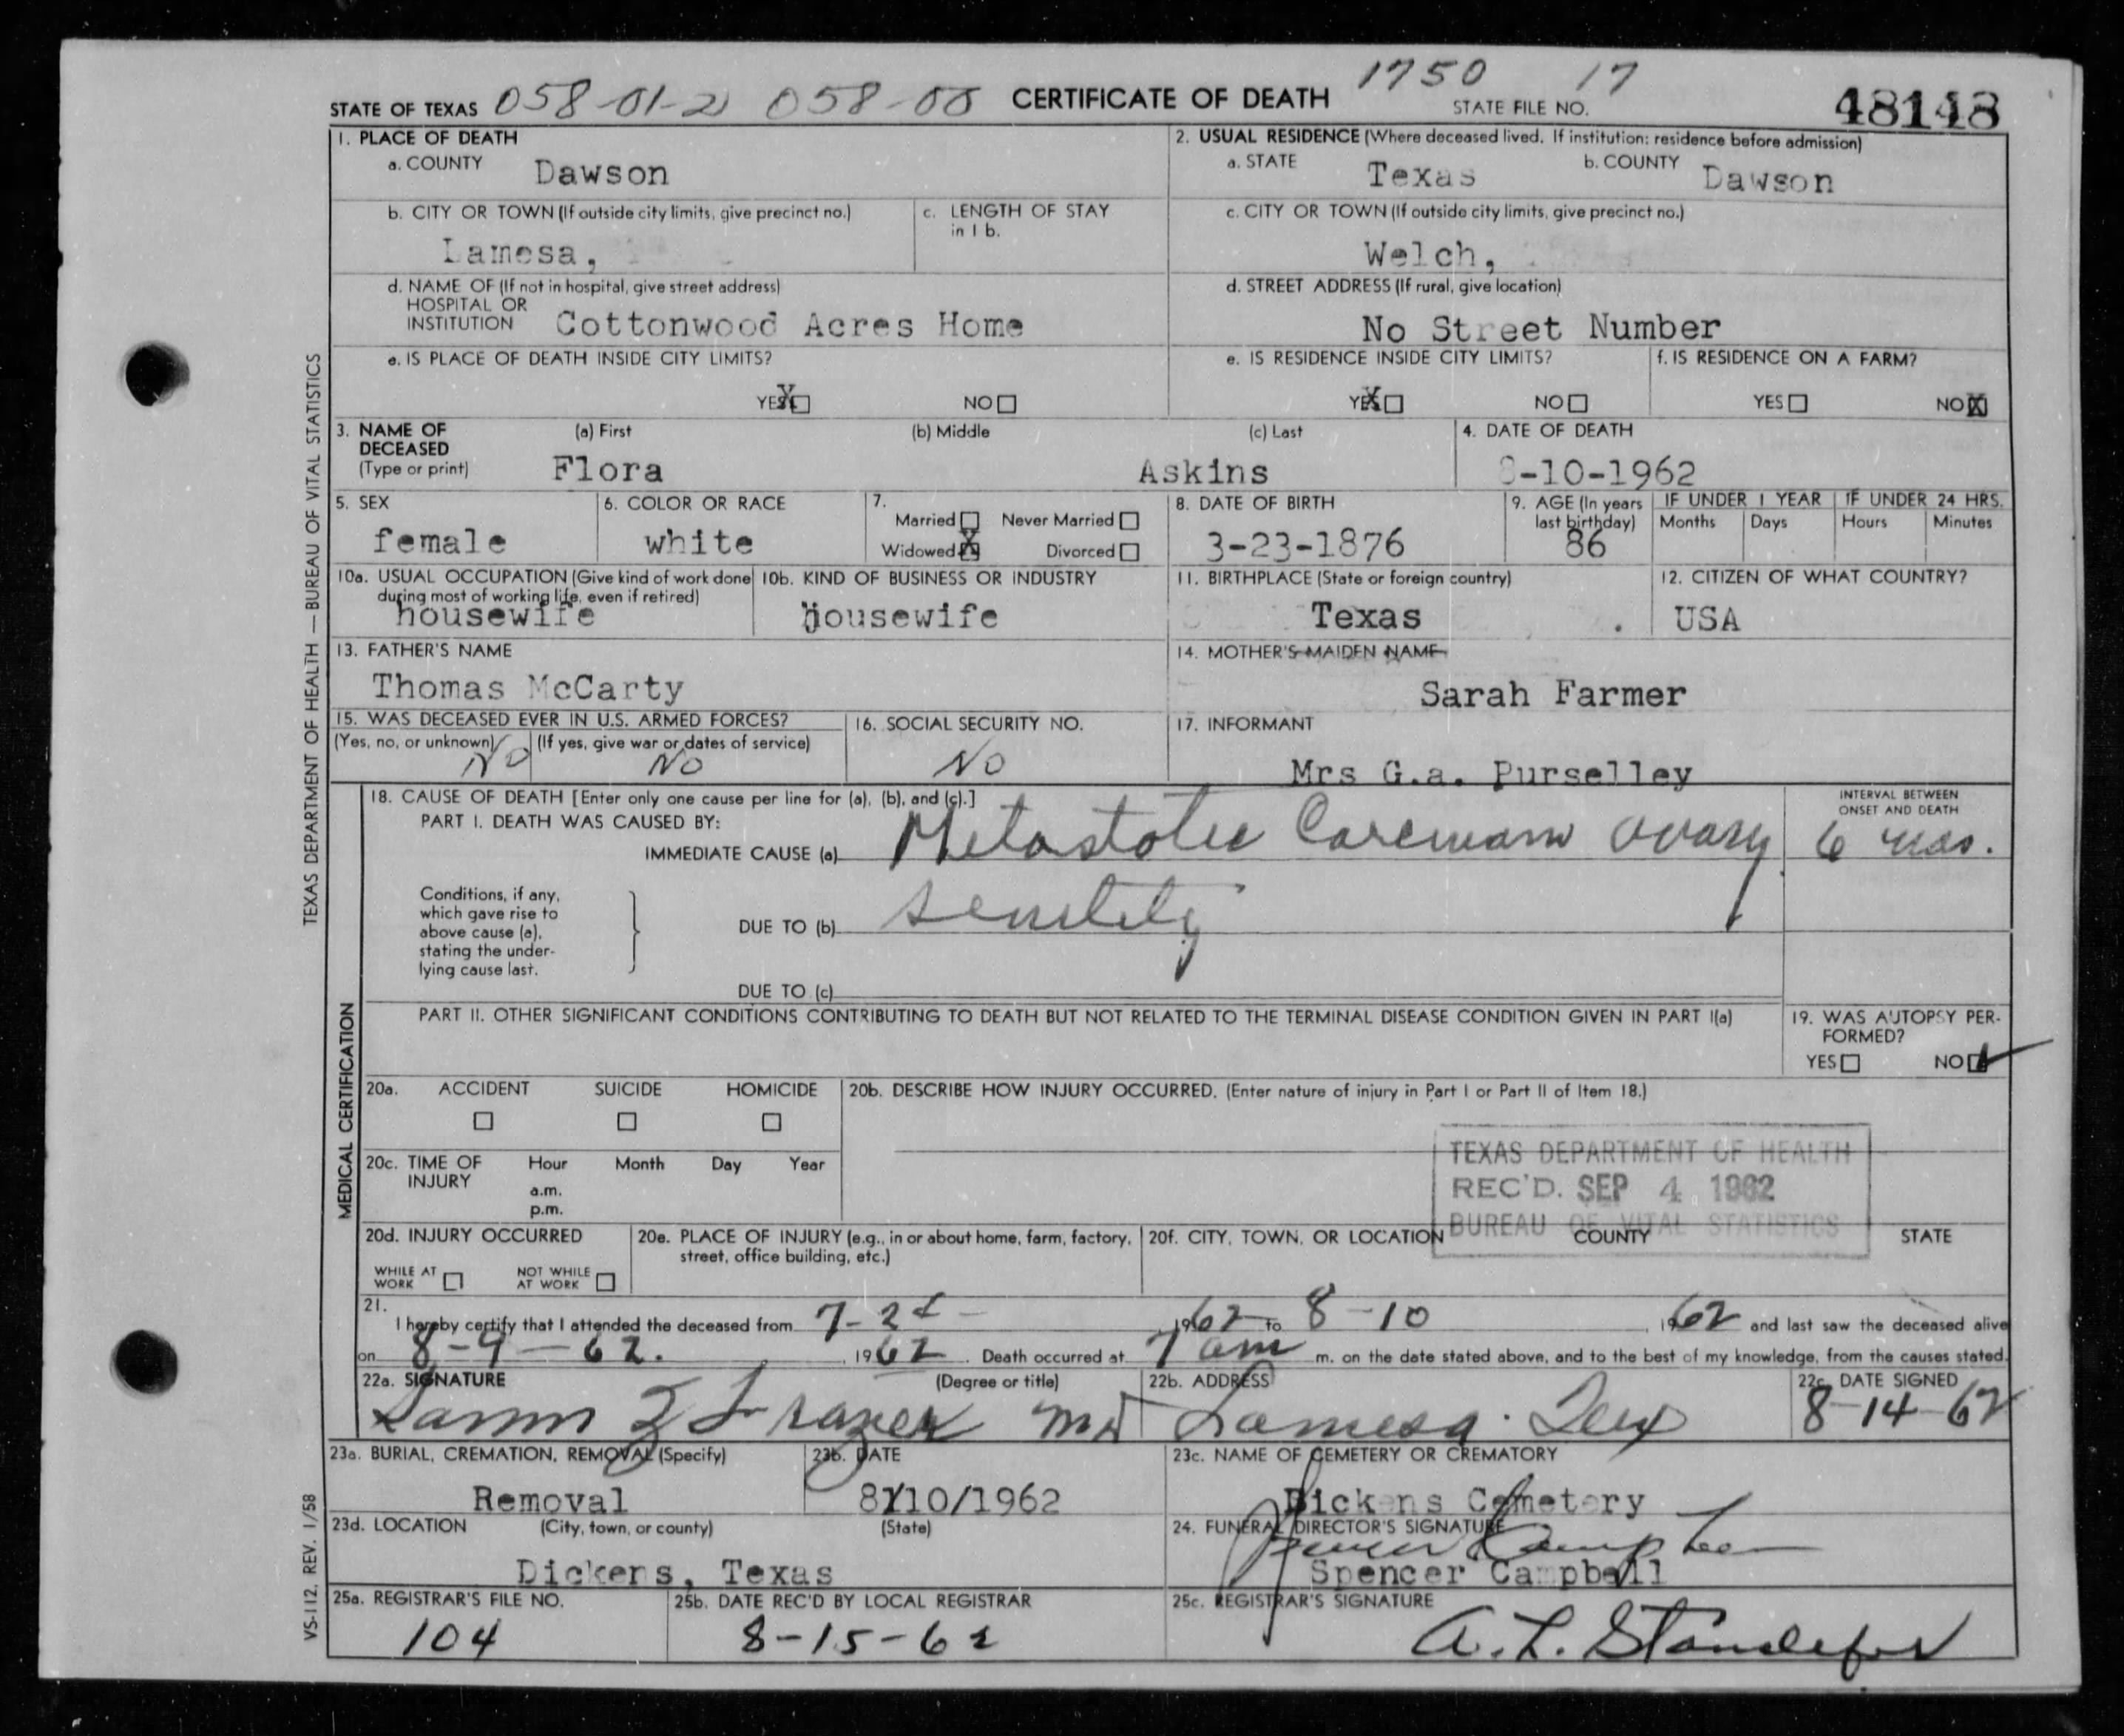 STATE OF TEXAS 058-01-2 058-00 CERTIFICATE OF DEATH 1750 17 STATE FILE NO. 48148
1. PLACE OF DEATH
a. COUNTY Dawson
2. USUAL RESIDENCE (Where deceased lived. If institution: residence before admission)
a. STATE Texas b. COUNTY Dawson
b. CITY OR TOWN (If outside city limits, give precinct no.)
Lamesa,
c. LENGTH OF STAY
in 1 b.
c. CITY OR TOWN (If outside city limits, give precinct no.)
Welch,
d. NAME OF (If not in hospital, give street address)
HOSPITAL OR
INSTITUTION Cottonwood Acres Home
d. STREET ADDRESS (If rural, give location)
No Street Number
e. IS PLACE OF DEATH INSIDE CITY LIMITS?
YES X NO
e. IS RESIDENCE INSIDE CITY LIMITS?
YES X NO
f. IS RESIDENCE ON A FARM?
YES NO X
3. NAME OF
DECEASED
(Type or print)
(a) First (b) Middle (c) Last
Flora Askins
4. DATE OF DEATH
8-10-1962
5. SEX
female
6. COLOR OR RACE
white
7.
Married Never Married
Widowed X Divorced
8. DATE OF BIRTH
3-23-1876
9. AGE (In years
last birthday)
86
IF UNDER 1 YEAR IF UNDER 24 HRS.
Months Days Hours Minutes
10a. USUAL OCCUPATION (Give kind of work done
during most of working life, even if retired)
housewife
10b. KIND OF BUSINESS OR INDUSTRY
housewife
11. BIRTHPLACE (State or foreign country)
Texas
12. CITIZEN OF WHAT COUNTRY?
USA
13. FATHER'S NAME
Thomas McCarty
14. MOTHER'S MAIDEN NAME
Sarah Farmer
15. WAS DECEASED EVER IN U.S. ARMED FORCES?
(Yes, no, or unknown) (If yes, give war or dates of service)
No No
16. SOCIAL SECURITY NO.
No
17. INFORMANT
Mrs G.a. Purselley
18. CAUSE OF DEATH [Enter only one cause per line for (a), (b), and (c).]
PART I. DEATH WAS CAUSED BY:
IMMEDIATE CAUSE (a) Metastatic Carcinoma ovary
INTERVAL BETWEEN
ONSET AND DEATH
6 mos.
Conditions, if any,
which gave rise to
above cause (a),
stating the under-
lying cause last.
DUE TO (b) senility
DUE TO (c)
PART II. OTHER SIGNIFICANT CONDITIONS CONTRIBUTING TO DEATH BUT NOT RELATED TO THE TERMINAL DISEASE CONDITION GIVEN IN PART I(a)
19. WAS AUTOPSY PER-
FORMED?
YES NO
20a. ACCIDENT SUICIDE HOMICIDE
20b. DESCRIBE HOW INJURY OCCURRED. (Enter nature of injury in Part I or Part II of Item 18.)
20c. TIME OF
INJURY
Hour Month Day Year
a.m.
p.m.
TEXAS DEPARTMENT OF HEALTH
REC'D. SEP 4 1962
BUREAU OF VITAL STATISTICS
20d. INJURY OCCURRED
WHILE AT
WORK
NOT WHILE
AT WORK
20e. PLACE OF INJURY (e.g., in or about home, farm, factory,
street, office building, etc.)
20f. CITY, TOWN, OR LOCATION COUNTY STATE
21.
I hereby certify that I attended the deceased from 7-2 1962 to 8-10 1962 and last saw the deceased alive
on 8-9-62. 1962. Death occurred at 7 am m. on the date stated above, and to the best of my knowledge, from the causes stated.
22a. SIGNATURE (Degree or title)
Frazer MD
22b. ADDRESS
Lamesa. Tex
22c. DATE SIGNED
8-14-62
23a. BURIAL, CREMATION, REMOVAL (Specify)
Removal
23b. DATE
8/10/1962
23c. NAME OF CEMETERY OR CREMATORY
Dickens Cemetery
23d. LOCATION (City, town, or county) (State)
Dickens, Texas
24. FUNERAL DIRECTOR'S SIGNATURE
Spencer Campbell
25a. REGISTRAR'S FILE NO.
104
25b. DATE REC'D BY LOCAL REGISTRAR
8-15-62
25c. REGISTRAR'S SIGNATURE
A. L. Standefer
TEXAS DEPARTMENT OF HEALTH — BUREAU OF VITAL STATISTICS
MEDICAL CERTIFICATION
VS-112, REV. 1/58